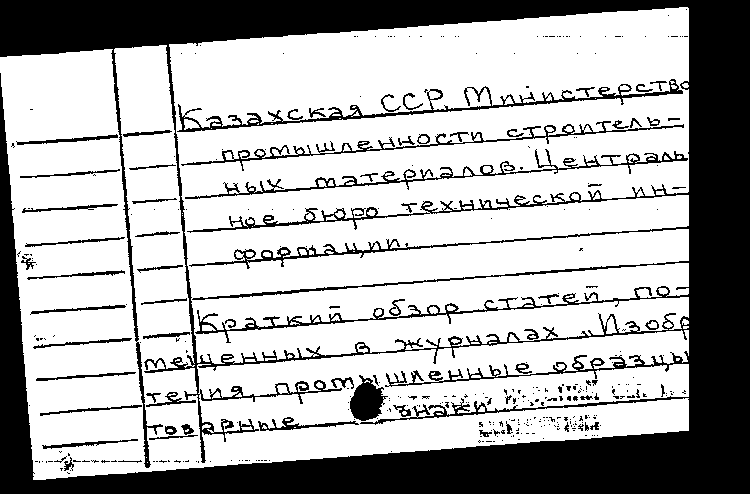 Казахская ССР. Министерство
промышленности строитель-
ных материалов. Централь
ное бюро технической ин-
формации.
Краткий обзор статей, по-
мещенных в журналах „Изобр
тения, промышленные образцы
товарные знаки.